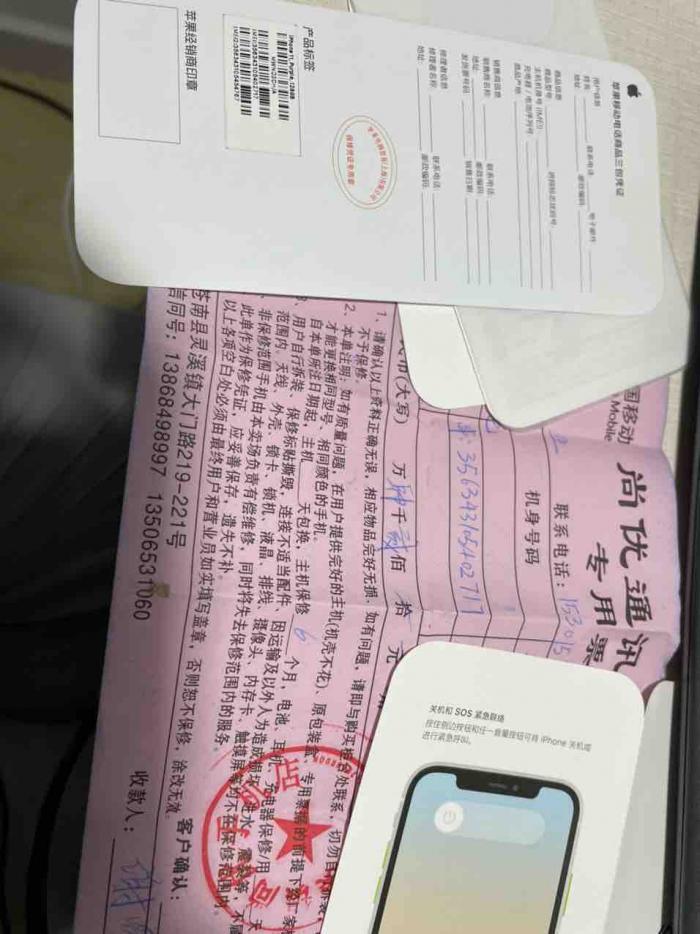 苹果移动电话商品三包凭证
用户信息
姓名:
联系电话:
电子邮件:
地址:
邮政编码:
商品信息
商品型号:
主机机身号 (IMEI):
充电器/电池序列号:
商品产地:
销售商信息
销售商名称:
联系电话:
地址:
邮政编码:
发货票号码:
销售日期:
修理者信息
修理者名称:
联系电话:
地址:
邮政编码:
保修凭证专用章
产品标签
iPhone 11, Purple, 128GB
苹果经销商印章
国移动
Mobile
尚优通讯
专用票
联系电话:
机身号码
356343105402717
币(大写)
万
千
佰
拾
元
1、请确认以上资料正确无误,相应物品完好无损,如有问题,请即与购买柜台处联系,切勿自
不予保修。
2、本单注明:如有质量问题,在用户提供完好的主机(机壳不花)、原包装盒、专用票据的前提下
才能更换相同型号、相同颜色的手机。
自本单所注日期起,主机
天包换,主机保修 6 个月,电池、耳机、充电器保修/用
天
用户自行拆装、保修标贴撕毁,连接不适当配件、因运输及以外人为造成损坏、进水、震裂等,不属
范围内
天线、外壳、锁卡、锁机、液晶、排线、摄像头、内存卡、触摸屏等均不在保修范围内。
非保修范围手机由本卖场负责有偿维修,同时将失去保修范围内的服务。
此单作为保修凭证,应妥善保存,遗失不补。
以上各项空白处必须由最终用户和营业员如实填写盖章,否则恕不保修,涂改无效。
客户确认:
苍南县灵溪镇大门路219-221号
信同号: 13868498997 13506531060
收款人:
关机和 SOS 紧急联络
按住侧边按钮和任一音量按钮可将 iPhone 关机或
进行紧急呼叫。